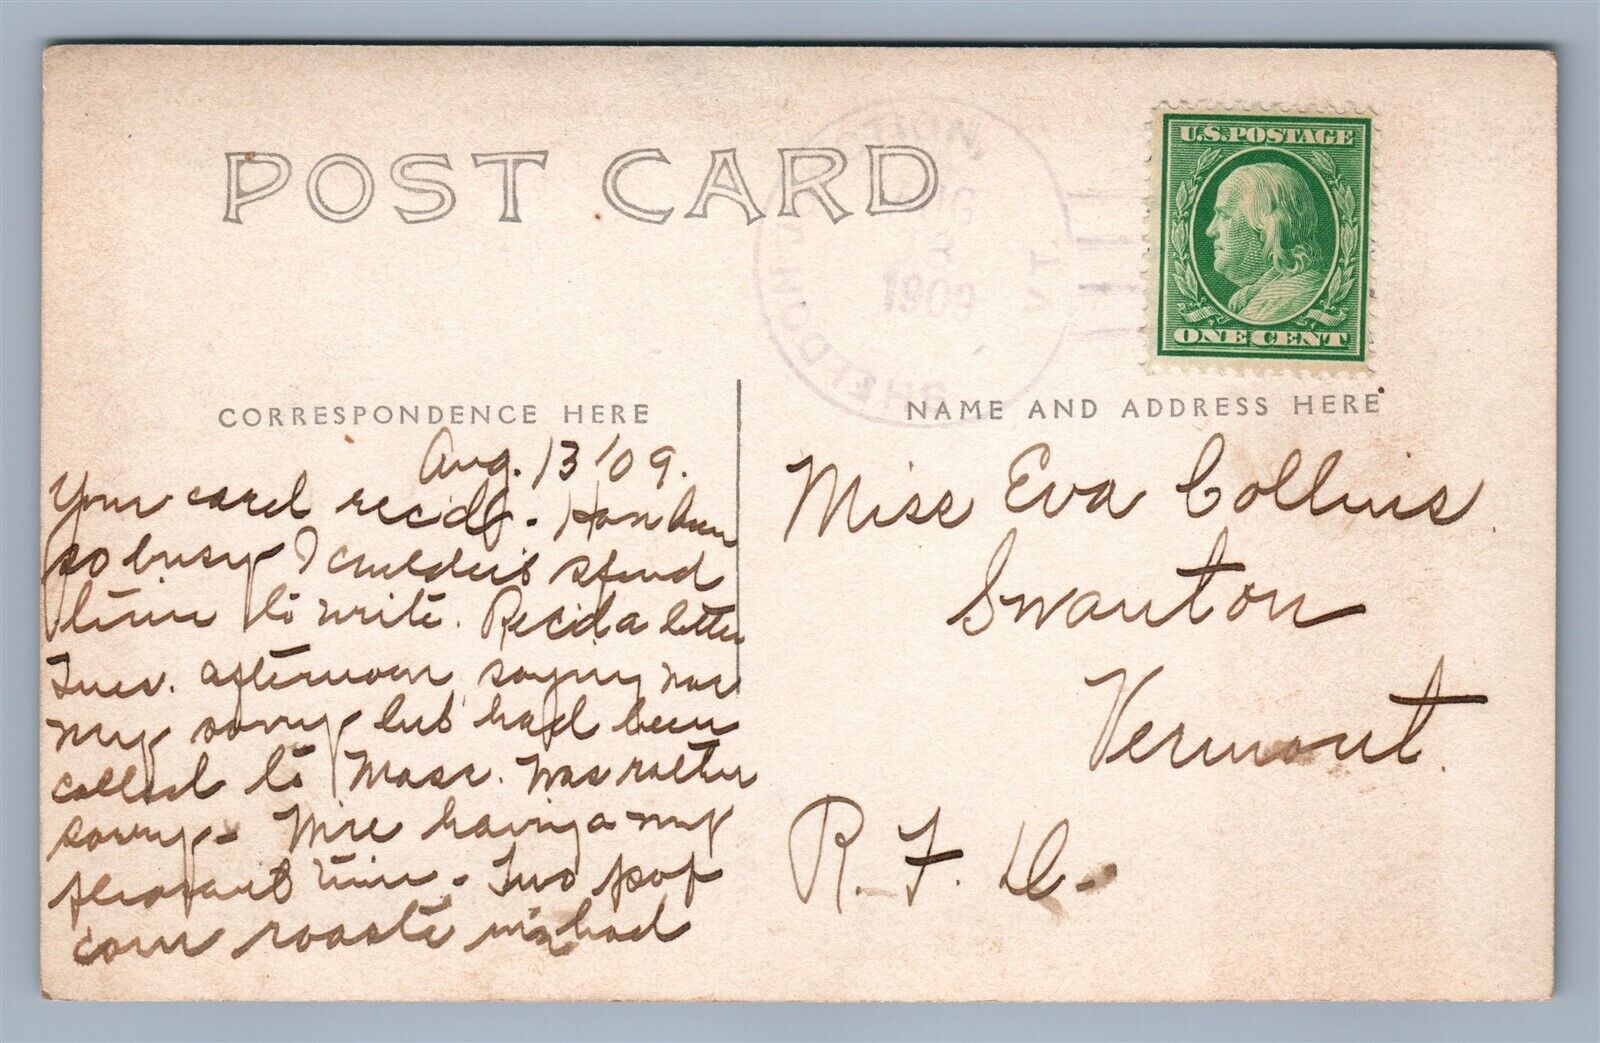 POST CARD
SHELDON JUNCTION,
VT.
AUG
1909
U.S. POSTAGE
ONE CENT
CORRESPONDENCE HERE
NAME AND ADDRESS HERE
Aug. 13 '09.
Your card rec'd. Have been
so busy I couldn't spend
time to write. Rec'd a letter
Tues. afternoon saying was
very sorry but had been
called to Mass. Was rather
sorry - Mre having a very
pleasant time - Two pop
corn roasts we had
Miss Eva Collins
Swanton
Vermont.
R. F. D.